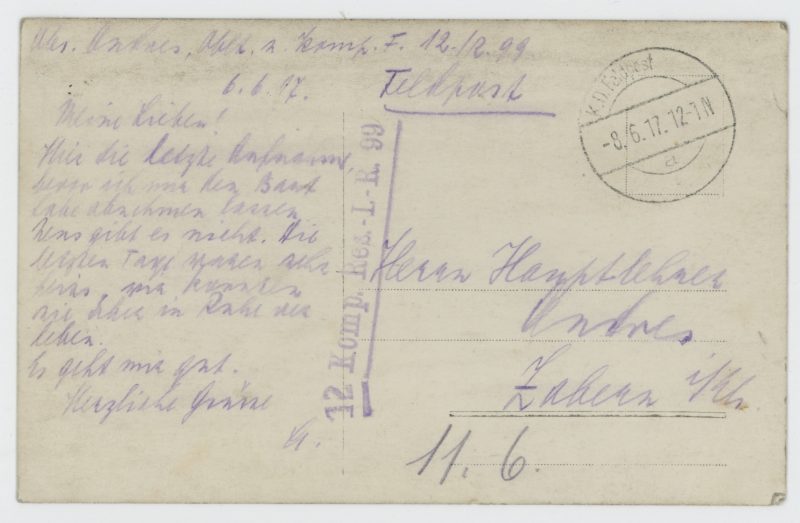 Abs. Andres, Oblt. u. Komp. F. 12./R. 99.
6. 6. 17.
Feldpost
Meine Lieben!
Hier die letzte Aufnahme,
bevor ich mir den Bart
habe abnehmen lassen.
gibt es nicht. Die
letzten Tage waren sehr
wir konnten
nie in Ruhe
leben.
Es geht mir gut.
Herzliche Grüsse
A.
12. Komp. Res.-I.-R. 99
K.D. Feldpost
-8.6.17.12-1N
a
Herrn Hauptlehrer
Andres
Zabern i/Els.
11. 6.